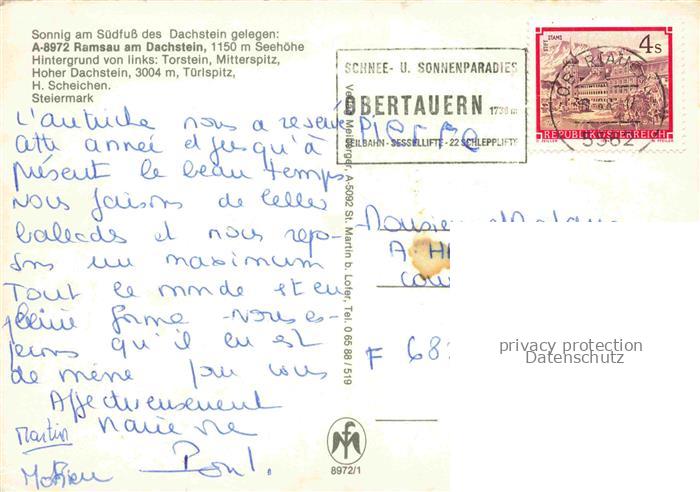 Sonnig am Südfuß des Dachstein gelegen:
A-8972 Ramsau am Dachstein, 1150 m Seehöhe
Hintergrund von links: Torstein, Mitterspitz,
Hoher Dachstein, 3004 m, Türlspitz,
H. Scheichen.
Steiermark
L'autriche nous a réservé
cette année et jusqu'à
présent le beau temps
nous faisons de belles
ballades et nous repo-
sons un maximum
Tout le monde est en
pleine forme - nous es-
perons qu'il en est
de même pour vous
Affectueusement
Martin
Marie
Mathieu
Pierre
SCHNEE- U. SONNENPARADIES
OBERTAUERN 1738 m
SEILBAHN - SESSELLIFTE - 22 SCHLEPPLIFTE
STIFT STAMS
4 S
REPUBLIK ÖSTERREICH
5562
Monsieur et Madame
F 68
A-5092 St. Martin b. Lofer, Tel. 0 65 88 / 519
8972/1
privacy protection
Datenschutz